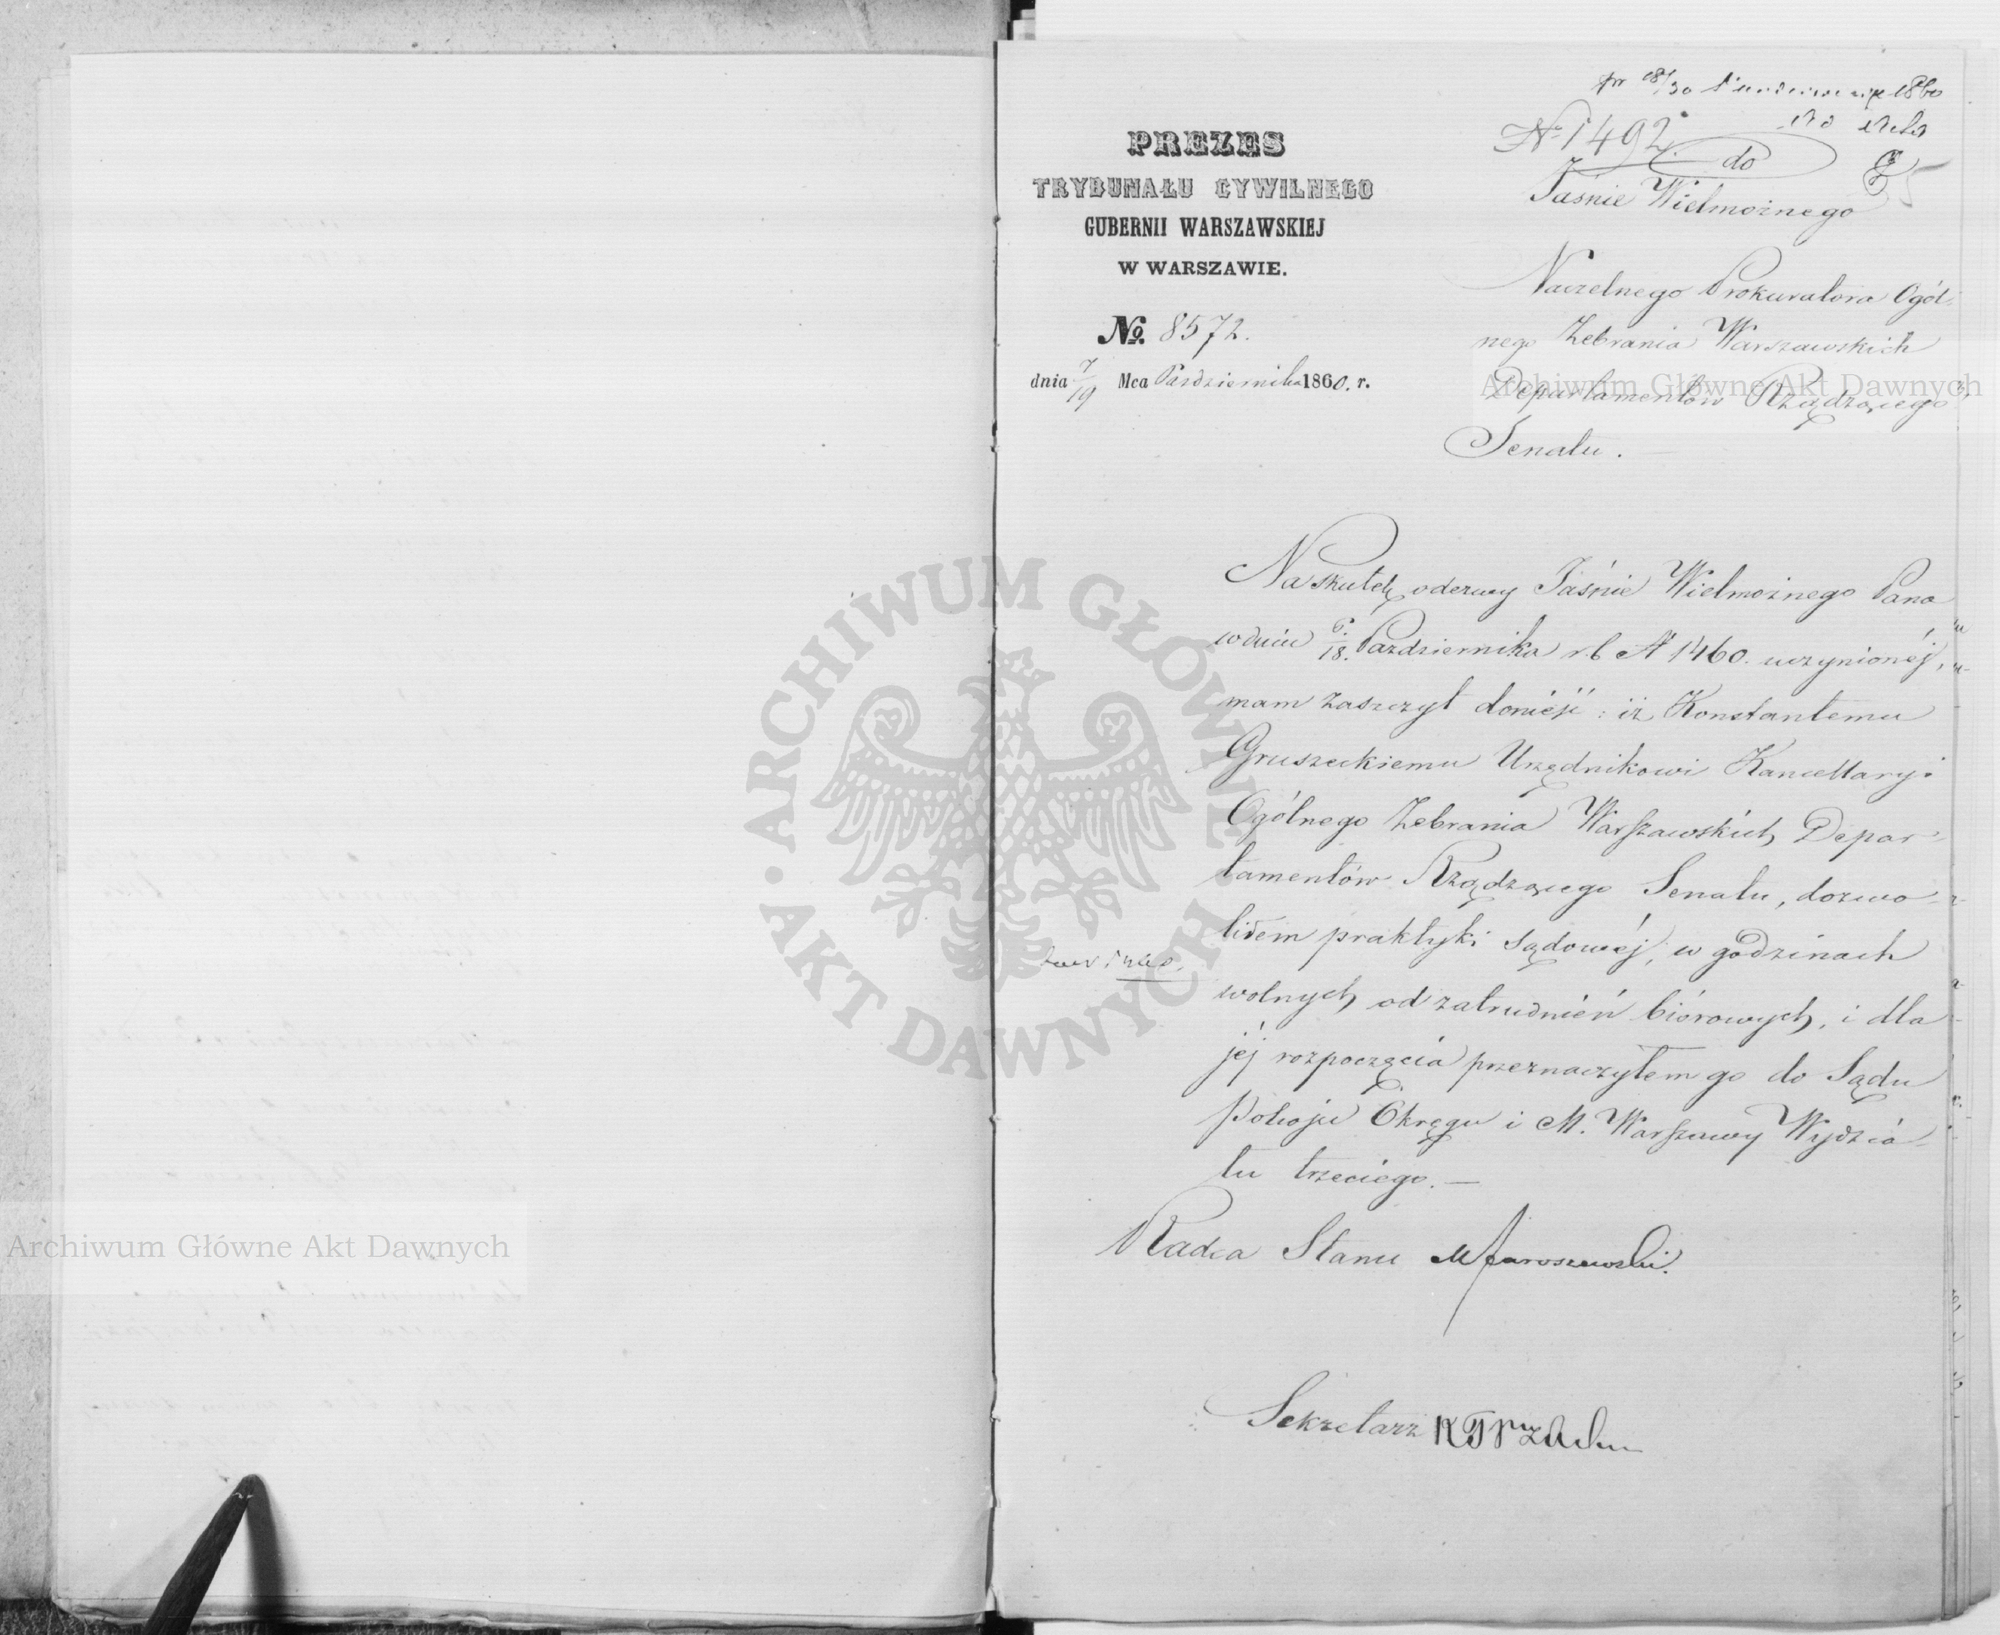 PREZES
TRYBUNAŁU CYWILNEGO
GUBERNII WARSZAWSKIEJ
W WARSZAWIE.
No. 8572.
dnia 7/19 Mca Października 1860. r.
pr 18/30 1860
No 1492.
do
85
Jaśnie Wielmożnego
Naczelnego Prokuratora Ogól-
nego Zebrania Warszawskich
Departamentów Rządzącego
Senatu.
Na skutek odezwy Jaśnie Wielmożnego Pana
w dniu 6/18. Października r.b. N 1460. uczynionéj,
mam zaszczyt donieść: iż Konstantemu
Gruszeckiemu Urzędnikowi Kancellaryi
Ogólnego Zebrania Warszawskich Depar-
tamentów Rządzącego Senatu, dozwo-
liłem praktyki sądowéj, w godzinach
wolnych od zatrudnień biórowych, i dla
jéj rozpoczęcia przeznaczyłem go do Sądu
Pokoju Okręgu i M. Warszawy Wydzia-
łu trzeciego. —
Radca Stanu M Jaroszewski.
Sekretarz
ARCHIWUM GŁÓWNE · AKT DAWNYCH ·
Archiwum Główne Akt Dawnych
Archiwum Główne Akt Dawnych